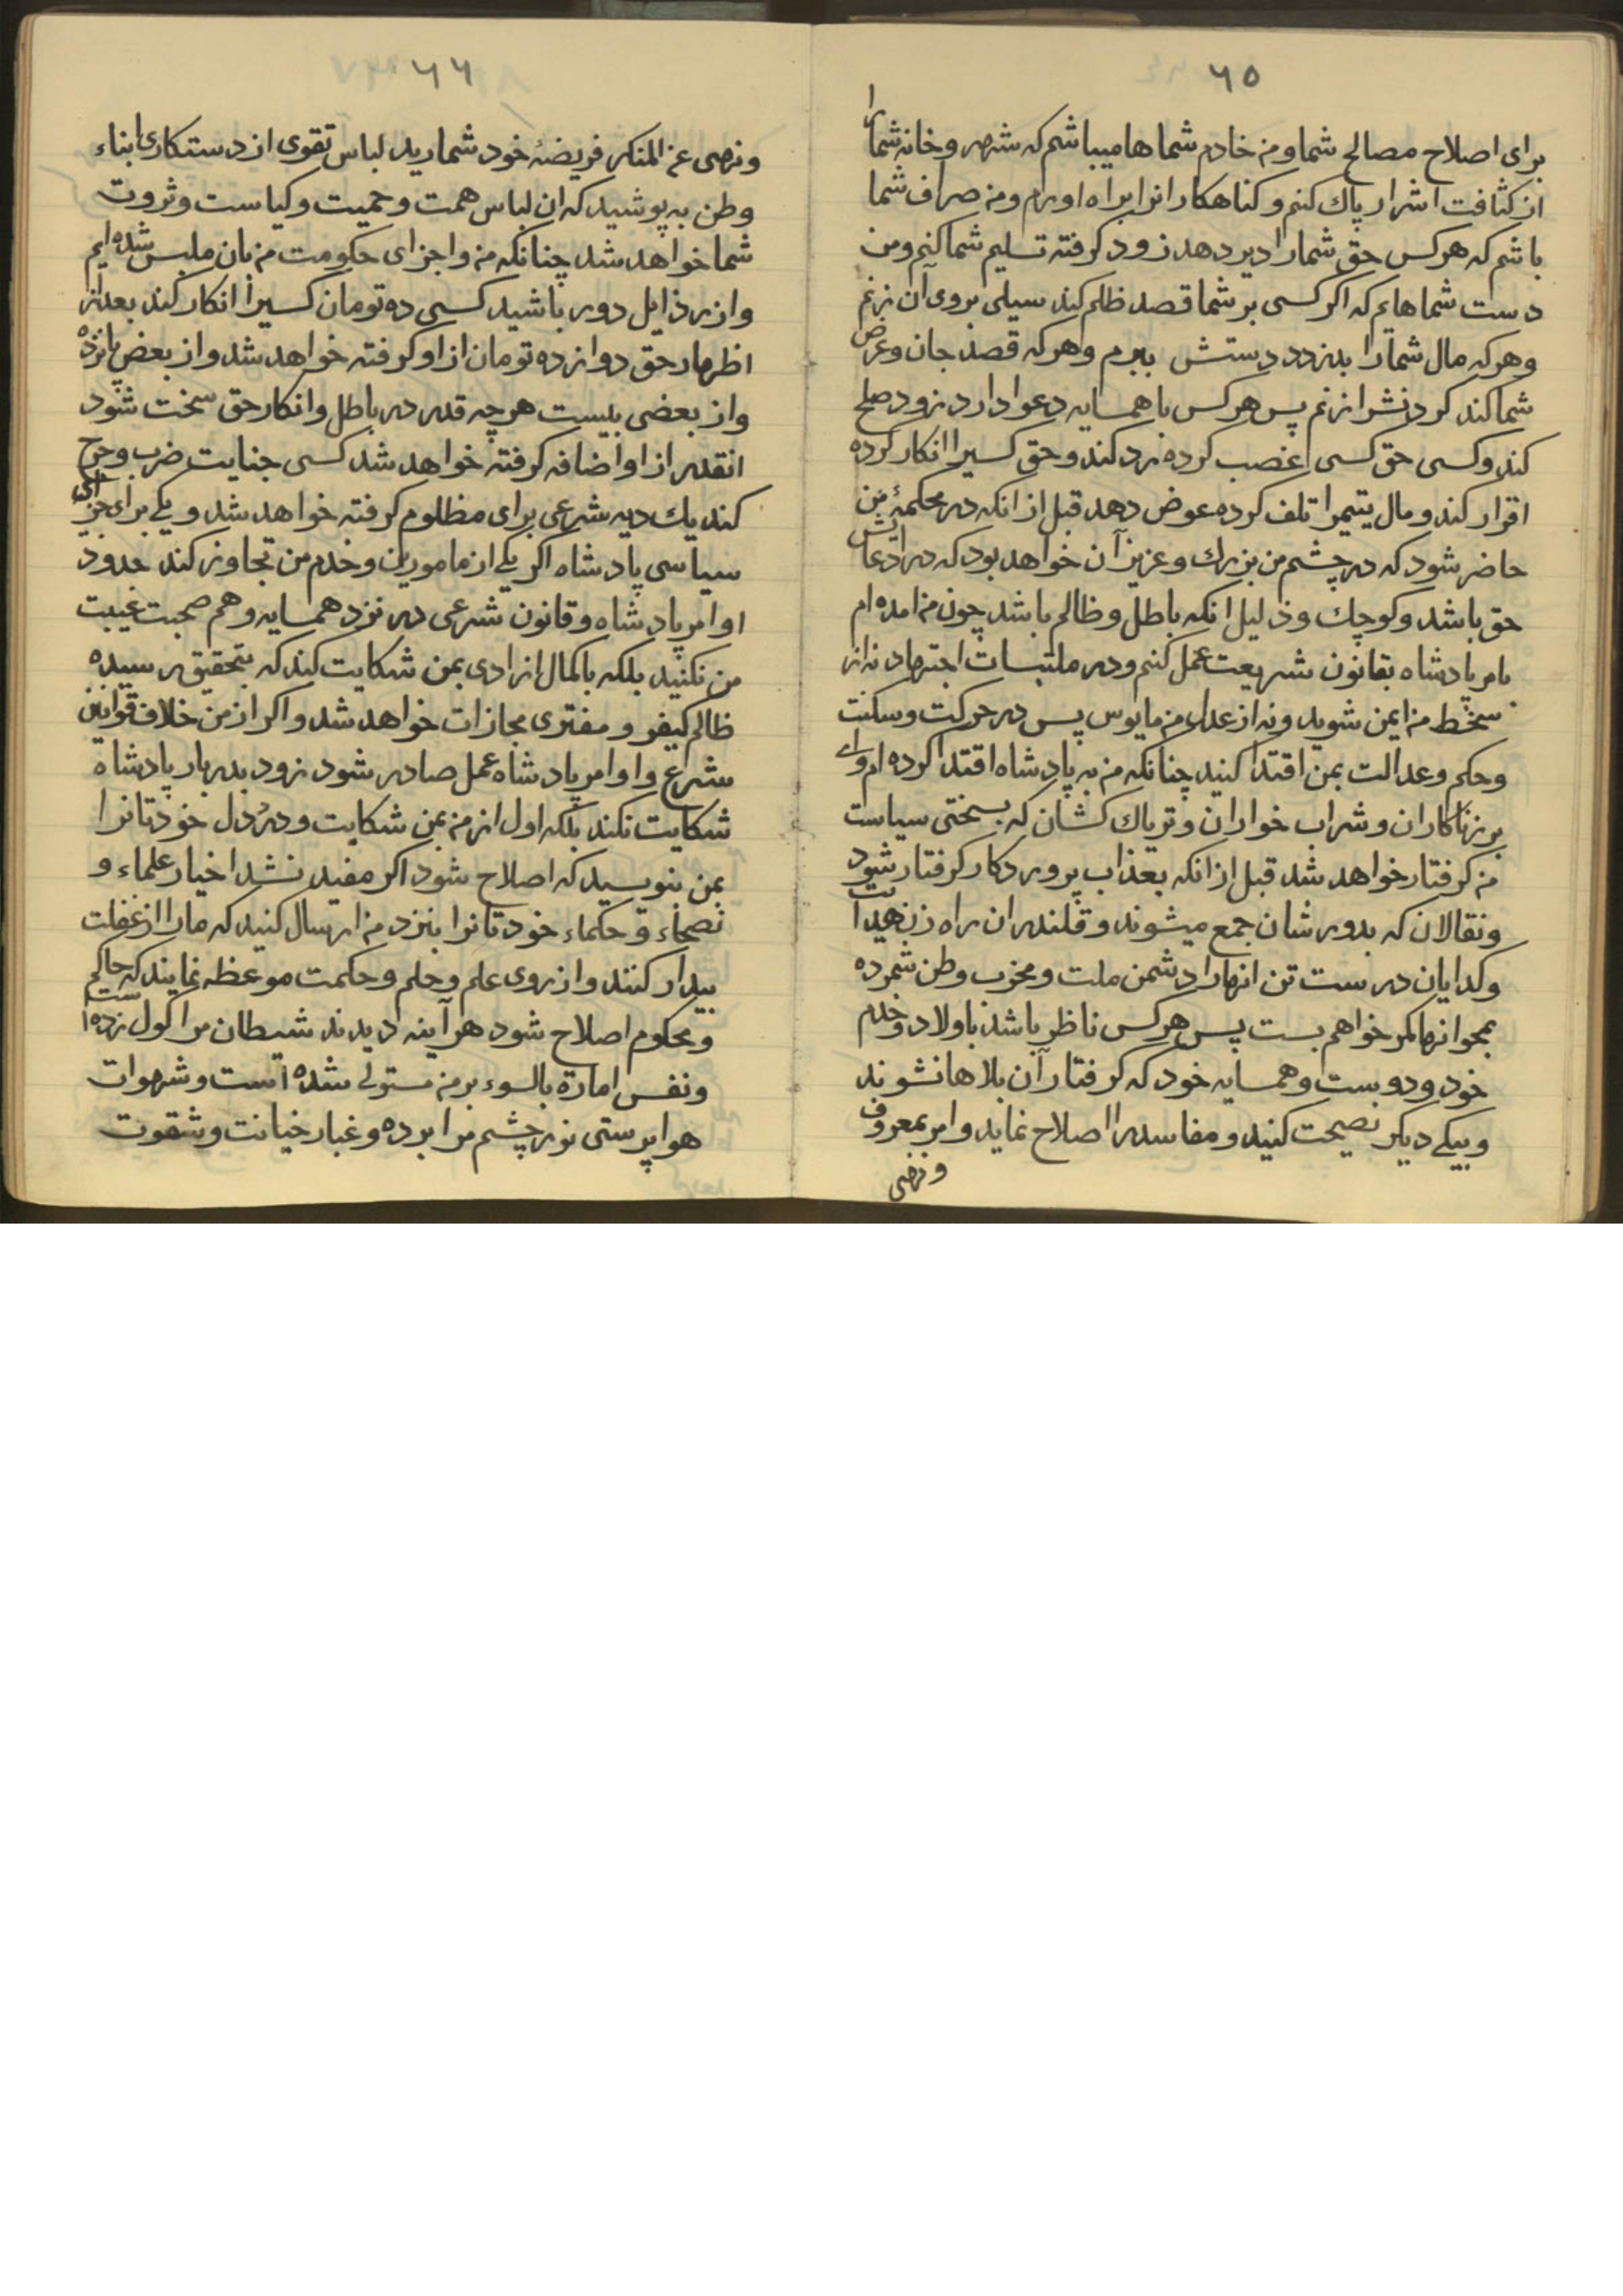 ٦٥
برای اصلاح مصالح شما و من خادم شماها میباشم که شهر و خانه شما را
از کثافت اشرار پاك کنم و کناهکارانرا براه اورم و من صراف شما
باشم که هرکس حق شما را دیر دهد زود کرفته تسلیم شما کنم و من
دست شماهایم که اکر کسی بر شما قصد ظلم کند سیلی بروی آن زنم
و هرکه مال شما را بدزدد دستش ببرم و هرکه قصد جان و عرض
شما کند کردنش را زنم پس هرکس با همسایه دعوا دارد زود صلح
کند و کسی حق کسی غصب کرده رد کند و حق کسیرا انکار کرده
اقرار کند و مال یتیمرا تلف کرده عوض دهد قبل از انکه در محکمهٔ من
حاضر شود که در چشم من بزرك و عزیز آن خواهد بود که در ادعایش
حق باشد و کوچك و ذلیل انکه باطل و ظالم باشد چون من امده ام
بامر پادشاه بقانون شریعت عمل کنم و در ملتبسات اجتهاد نه از
سخط من ایمن شوید و نه از عدل من مایوس پس در حرکت و سکنت
و حکم و عدالت بمن اقتدا کنید چنانکه من به پادشاه اقتدا کرده ام وای
بر زناکاران و شراب خواران و تریاك کشان که بسختی سیاست
من کرفتار خواهد شد قبل از انکه بعذاب پروردکار کرفتار شود
و نقالان که بدورشان جمع میشوند و قلندران راه زن هیدایت
و کدایان درست تن انهارا دشمن ملت و مخرب وطن شمرده
بمحو انها کمر خواهم بست پس هرکس ناظر باشد باولاد و خدم
خود و دوست و همسایه خود که کرفتار آن بلاها نشوند
و بیکی دیکر نصیحت کنید و مفاسد را اصلاح نماید و امر بمعروف
و نهی
٦٦
و نهی عن المنکر فریضهٔ خود شمارید لباس تقوی از دستکاری ابناء
وطن به پوشید که ان لباس همت و حمیت و کیاست و ثروت
شما خواهد شد چنانکه من و اجزای حکومت من بان ملبس شده ایم
و از رذایل دور باشید کسی ده تومان کسیرا انکار کند بعد از
اظهار حق دوازده تومان از او کرفته خواهد شد و از بعض پانزده
و از بعضی بیست هر چه قدر در باطل و انکار حق سخت شود
انقدر از او اضافه کرفته خواهد شد کسی جنایت ضرب و جرح
کند یك دیه شرعی برای مظلوم کرفته خواهد شد و یکی برای جزای
سیاسی پادشاه اکر یکی از مامورین و خدم من تجاوز کند حدود
اوامر پادشاه و قانون شرعی در نزد همسایه و هم صحبت غیبت
من نکنید بلکه باکمال ازادی بمن شکایت کند که بتحقیق رسیده
ظالم کیفر و مفتری مجازات خواهد شد و اکر از من خلاف قوانین
شرع و اوامر پادشاه عمل صادر شود زود بدربار پادشاه
شکایت نکند بلکه اول از من بمن شکایت و درد دل خودتانرا
بمن بنویسید که اصلاح شود اکر مفید نشد اخیار علماء و
نصحاء و حکماء خودتانرا بنزد من ارسال کنید که ما را از غفلت
بیدار کنند و از روی علم و حلم و حکمت موعظه نمایند که حاکم
و محکوم اصلاح شود هر آینه دیدند شیطان مرا کول زده است
و نفس اماره بالسوء بر من مستولی شده است و شهوات
هوا پرستی نور چشم مرا برده و غبار خیانت و شقوت